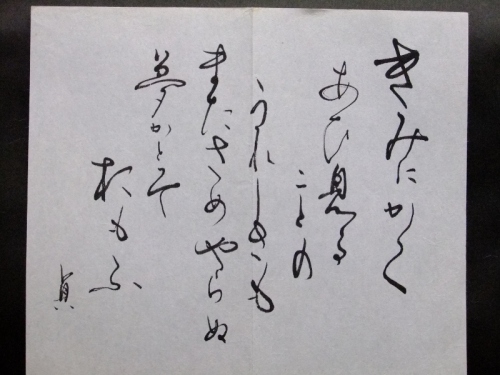 きみにかく
あひ見る
ことの
うれしさも
またさめやらぬ
夢かとそ
おもふ
貞